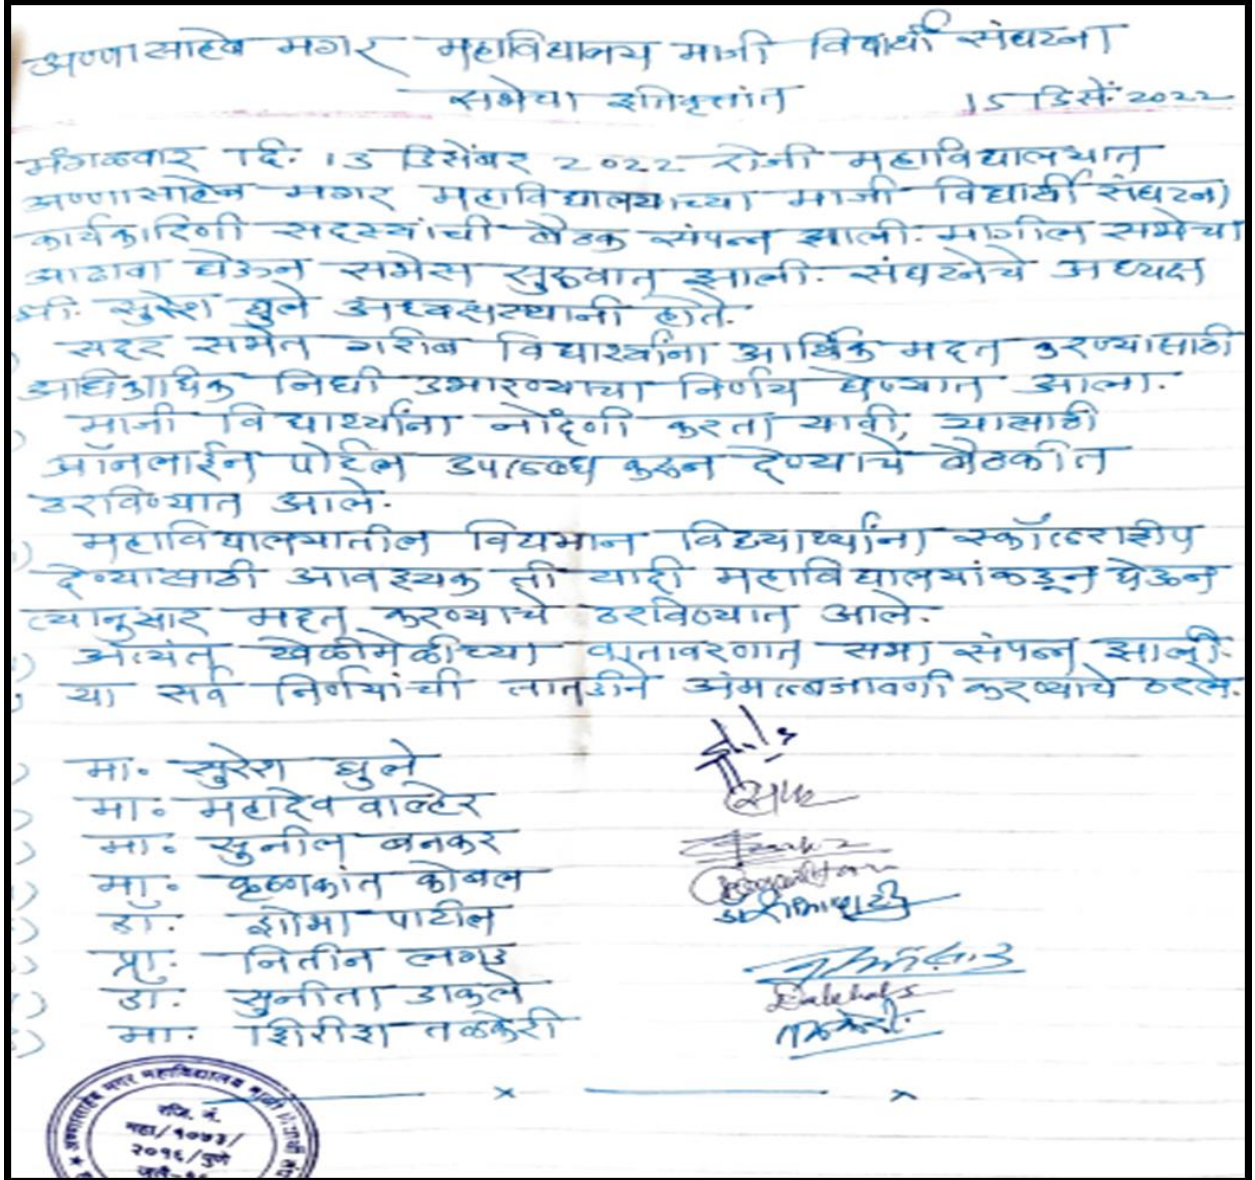 अण्णासाहेब मगर महाविद्यालय माजी विद्यार्थी संघटना
सभेचा इतिवृत्तांत 15 डिसें. 2022
मंगळवार दि. 13 डिसेंबर 2022 रोजी महाविद्यालयात
अण्णासाहेब मगर महाविद्यालयाच्या माजी विद्यार्थी संघटना
कार्यकारिणी सदस्यांची बैठक संपन्न झाली. मागील सभेचा
आढावा घेऊन सभेस सुरुवात झाली. संघटनेचे अध्यक्ष
श्री. सुरेश घुले अध्यक्षस्थानी होते.
सदर सभेत गरीब विद्यार्थ्यांना आर्थिक मदत करण्यासाठी
अधिकाधिक निधी उभारण्याचा निर्णय घेण्यात आला.
माजी विद्यार्थ्यांना नोंदणी करता यावी, यासाठी
ऑनलाईन पोर्टल उपलब्ध करुन देण्याचे बैठकीत
ठरविण्यात आले.
महाविद्यालयातील विद्यमान विद्यार्थ्यांना स्कॉलरशीप
देण्यासाठी आवश्यक ती यादी महाविद्यालयांकडून घेऊन
त्यानुसार मदत करण्याचे ठरविण्यात आले.
अत्यंत खेळीमेळीच्या वातावरणात सभा संपन्न झाली.
या सर्व निर्णयांची तातडीने अंमलबजावणी करण्याचे ठरले.
मा. सुरेश घुले
मा. महादेव वाल्हेर
मा. सुनील बनकर
मा. कृष्णकांत कोबल
डॉ. शोभा पाटील
प्रा. नितीन लगड
डॉ. सुनीता डाकले
मा. शिरीश तळकेरी
अण्णासाहेब मगर महाविद्यालय माजी विद्यार्थी
रजि. नं.
महा/१०७३/
२०१६/पुणे